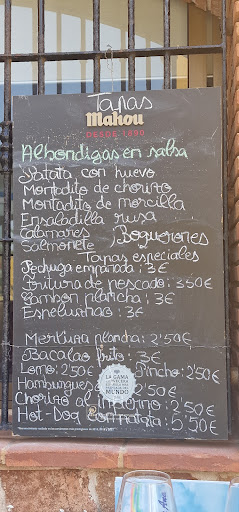 Tapas
Mahou
DESDE 1890
Albondigas en salsa
Patata con huevo
Montadito de chorizo
Montadito de morcilla
Ensaladilla rusa
Calamares Boquerones
Salmonete
Tapas especiales
Pechuga empanada: 3€
Fritura de pescado: 3'50€
Jambon plancha: 3€
3€
Merluza plancha: 2'50€
Bacalao frito: 3€
Lomo: 2'50€ Pincho: 2'50€
Hamburguesa 2'50€
Chorizo al infierno: 2'50€
Hot-Dog con 5'50€
LA GAMA
CERVECERA
MUNDO